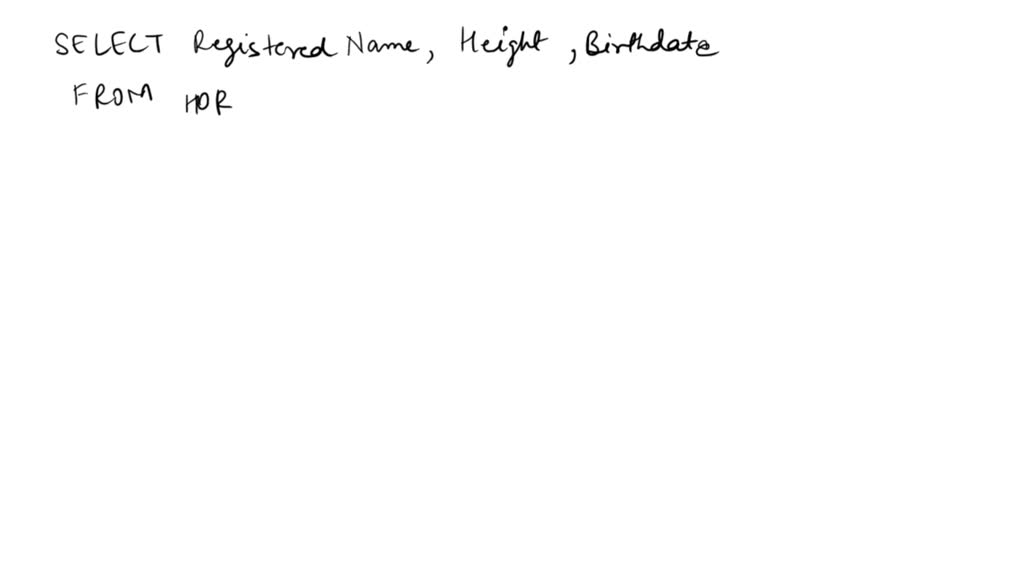 SELECT Registered Name, Height, Birthdate
FROM HOR